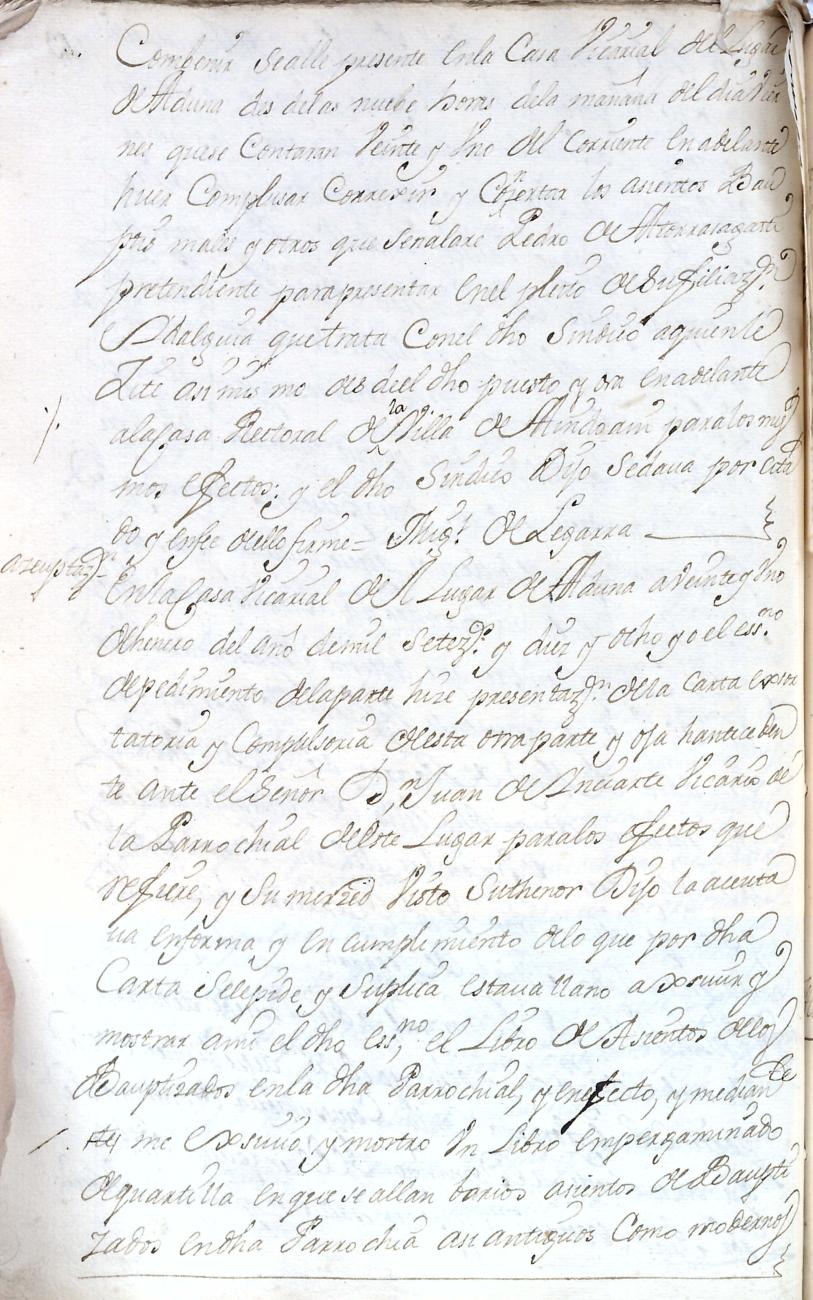 Combenir se alle presente en la Casa Vicarial del Lugar
de Aduna des de las nuebe horas de la mañana del dia Vier
nes que se Contaran Veinte y Vno del Corriente en adelante
haer Compulsar Correxir, y Conzertar los asientos Bau
ptis males y otros que señalare Pedro de Atorrasagasti
pretendiente para presentar en el pleito de su filiazon
Ydalguia que trata Con el dho Sindico a quien le
Zite asi mis mo des de el dho puesto y ora en adelante
a la Casa Rectoral de la Villa de Alindoain para los mis
mos efectos: y el dho Sindico Dijo Se dava por cita
do y en fee de ello firme = Migl de Legarra
azeuptazon
En la Casa Vicarial del Lugar de Aduna a Veinte y Vno
de henero del año de mil Setezos y diez y ocho yo el essno
de pedimiento de la parte hize presentazon de la carta exsor
tatoria y Compulsoria de esta otra parte y oja hantezeden
te ante el Señor Dn Juan de Yriarte Vicario de
la Parrochial de este Lugar para los efectos que
refiere, y Su merzed Visto Su thenor Dijo la aceuta
ua en forma y en cumplimiento de lo que por dha
Carta Se le pide y Suplica estava llano a exsivir y
mostrar a mi el dho essno, el Libro de Asientos de los
Bauptizados en la dha Parrochial, y en efecto, y median te
me exsivio, y mostro Vn Libro empergaminado
de quartilla en que se allan barios asientos de Baupti
zados en dha Parrochia asi antiguos Como modernos